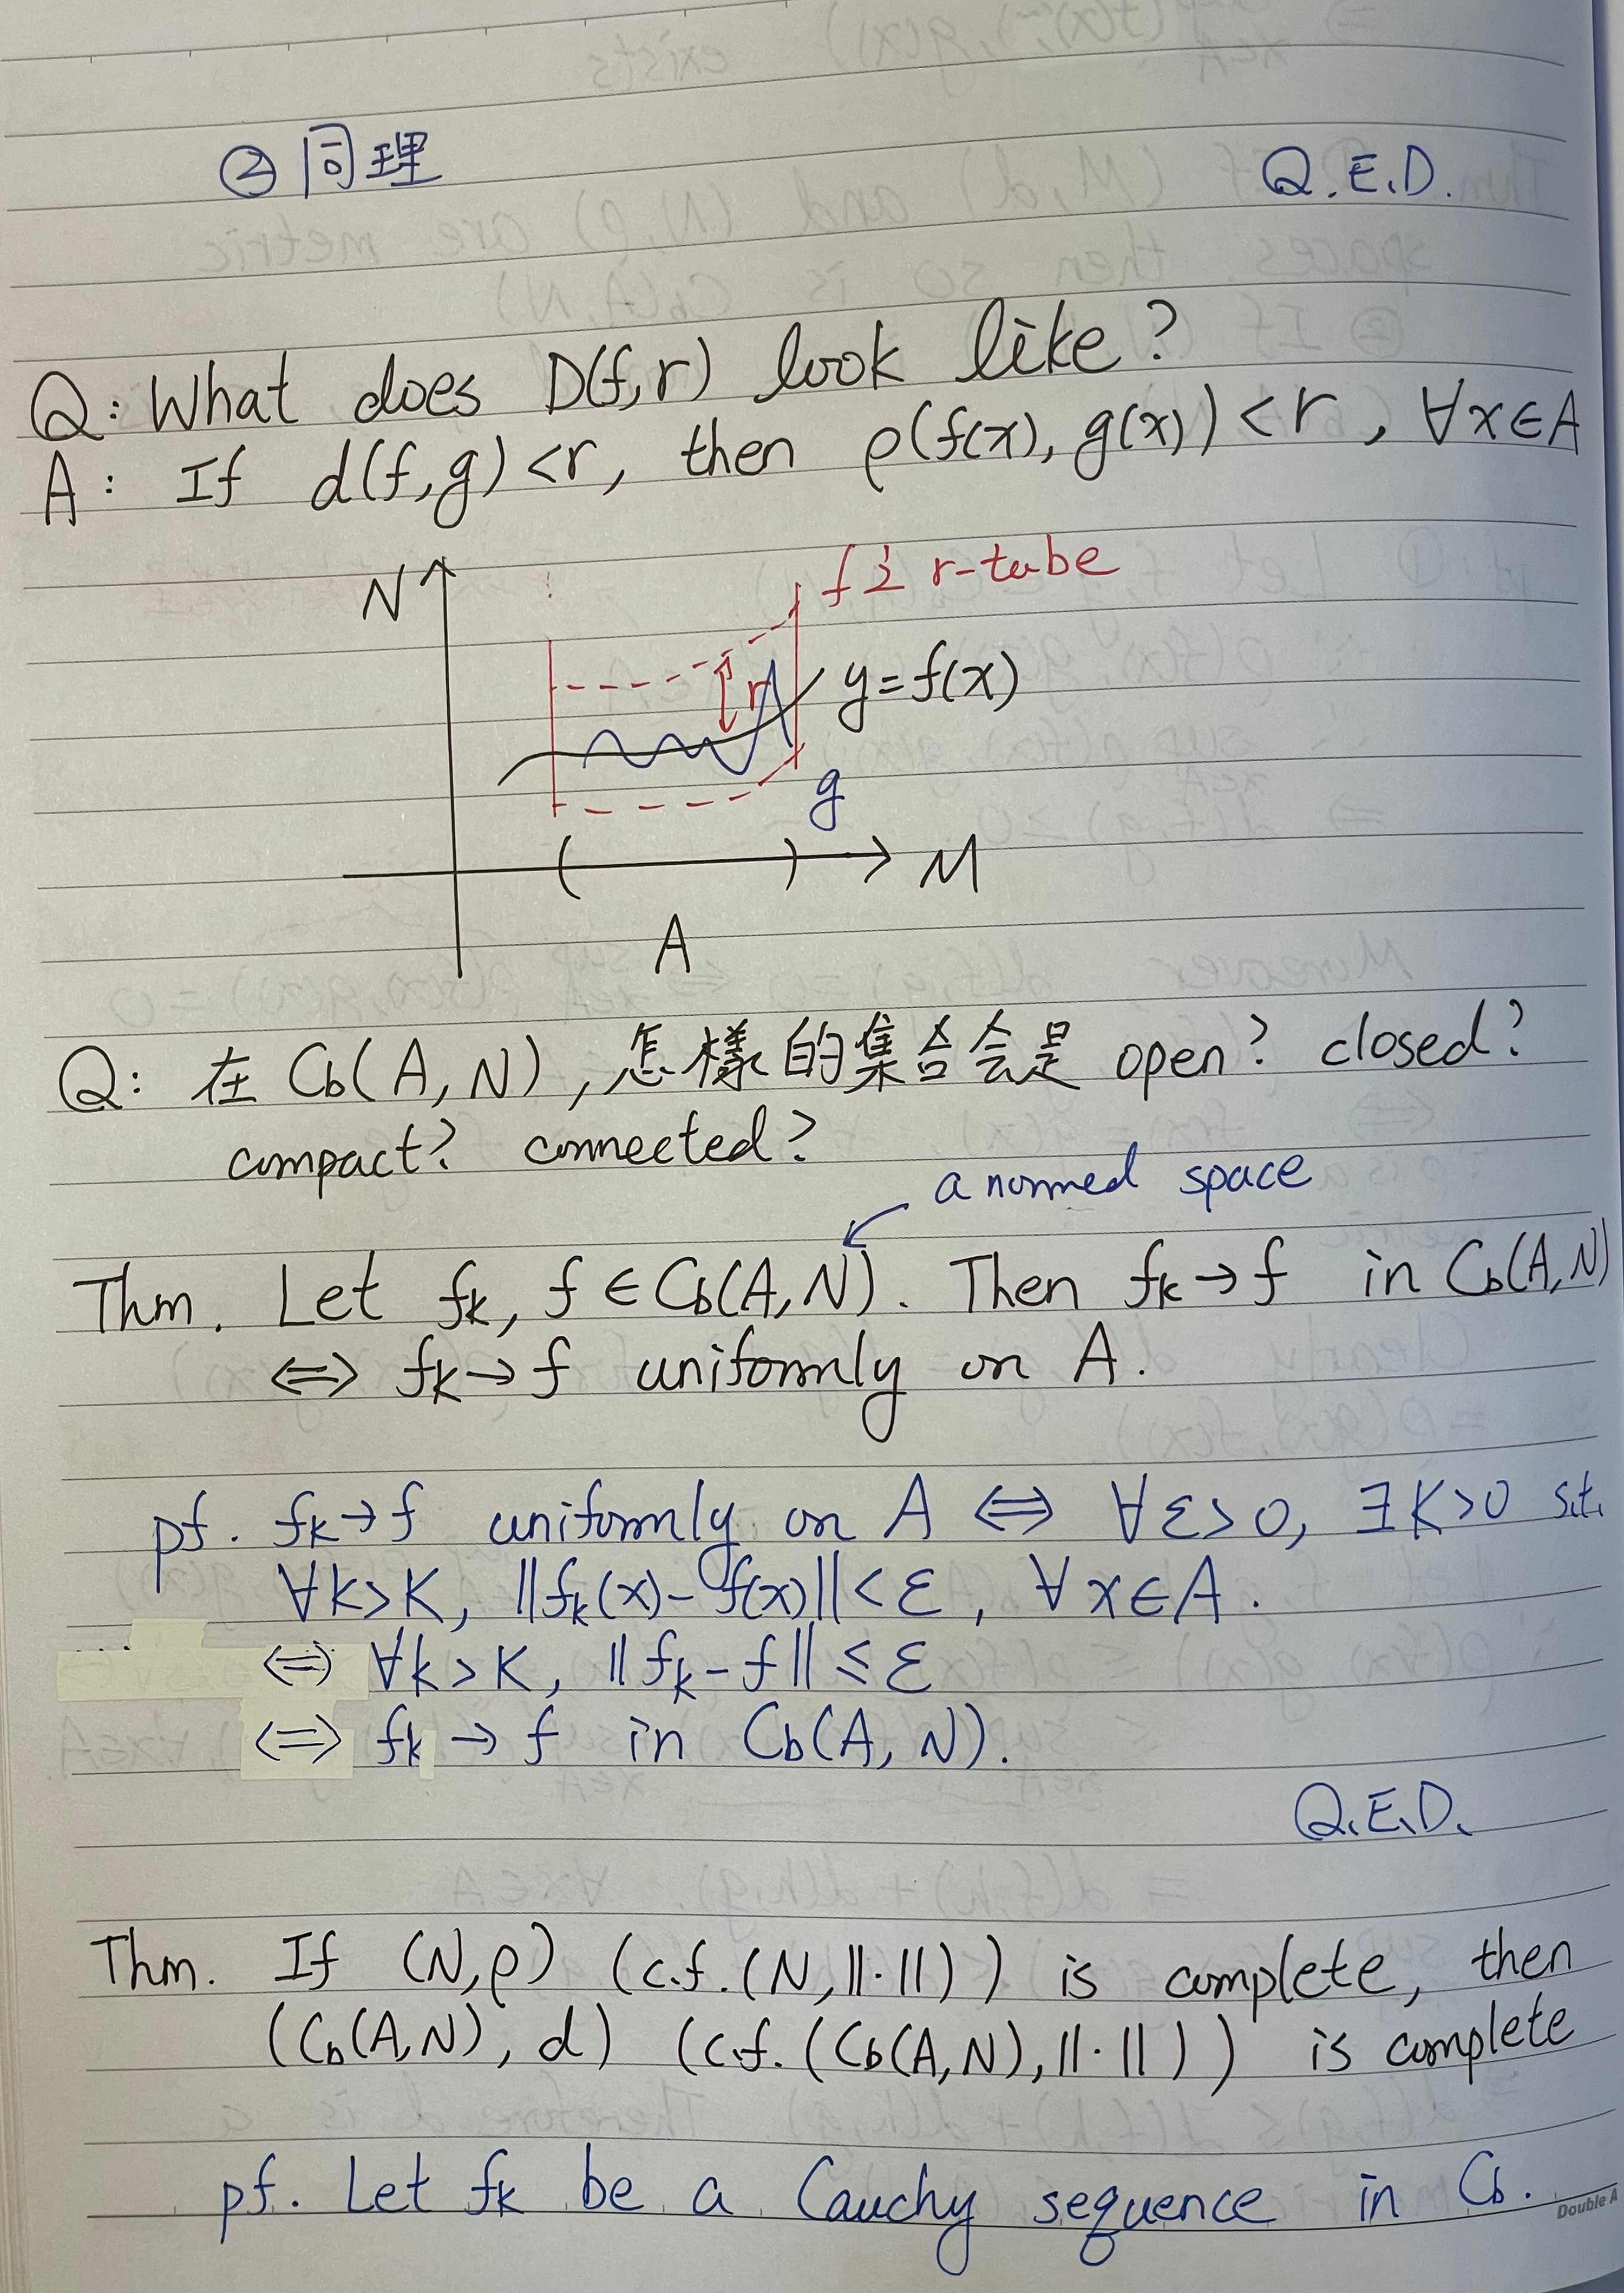 ② 同理
Q.E.D.
Q: What does D(f,r) look like?
A: If d(f,g)<r, then ρ(f(x), g(x))<r, ∀x∈A
N
f之 r-tube
r
y=f(x)
g
M
A
Q: 在 Cb(A, N), 怎樣的集合会是 open? closed?
compact? connected?
a normed space
Thm. Let fk, f ∈ Cb(A, N). Then fk→f in Cb(A,N)
⇔ fk→f uniformly on A.
pf. fk→f uniformly on A ⇔ ∀ε>0, ∃K>0 s.t.
∀k>K, ||fk(x)-f(x)||<ε, ∀x∈A.
⇔ ∀k>K, ||fk-f||≤ε
⇔ fk→f in Cb(A, N).
Q.E.D.
Thm. If (N,ρ) (c.f.(N,||·||)) is complete, then
(Cb(A,N), d) (c.f.(Cb(A,N),||·||)) is complete
pf. Let fk be a Cauchy sequence in Cb.
Double A